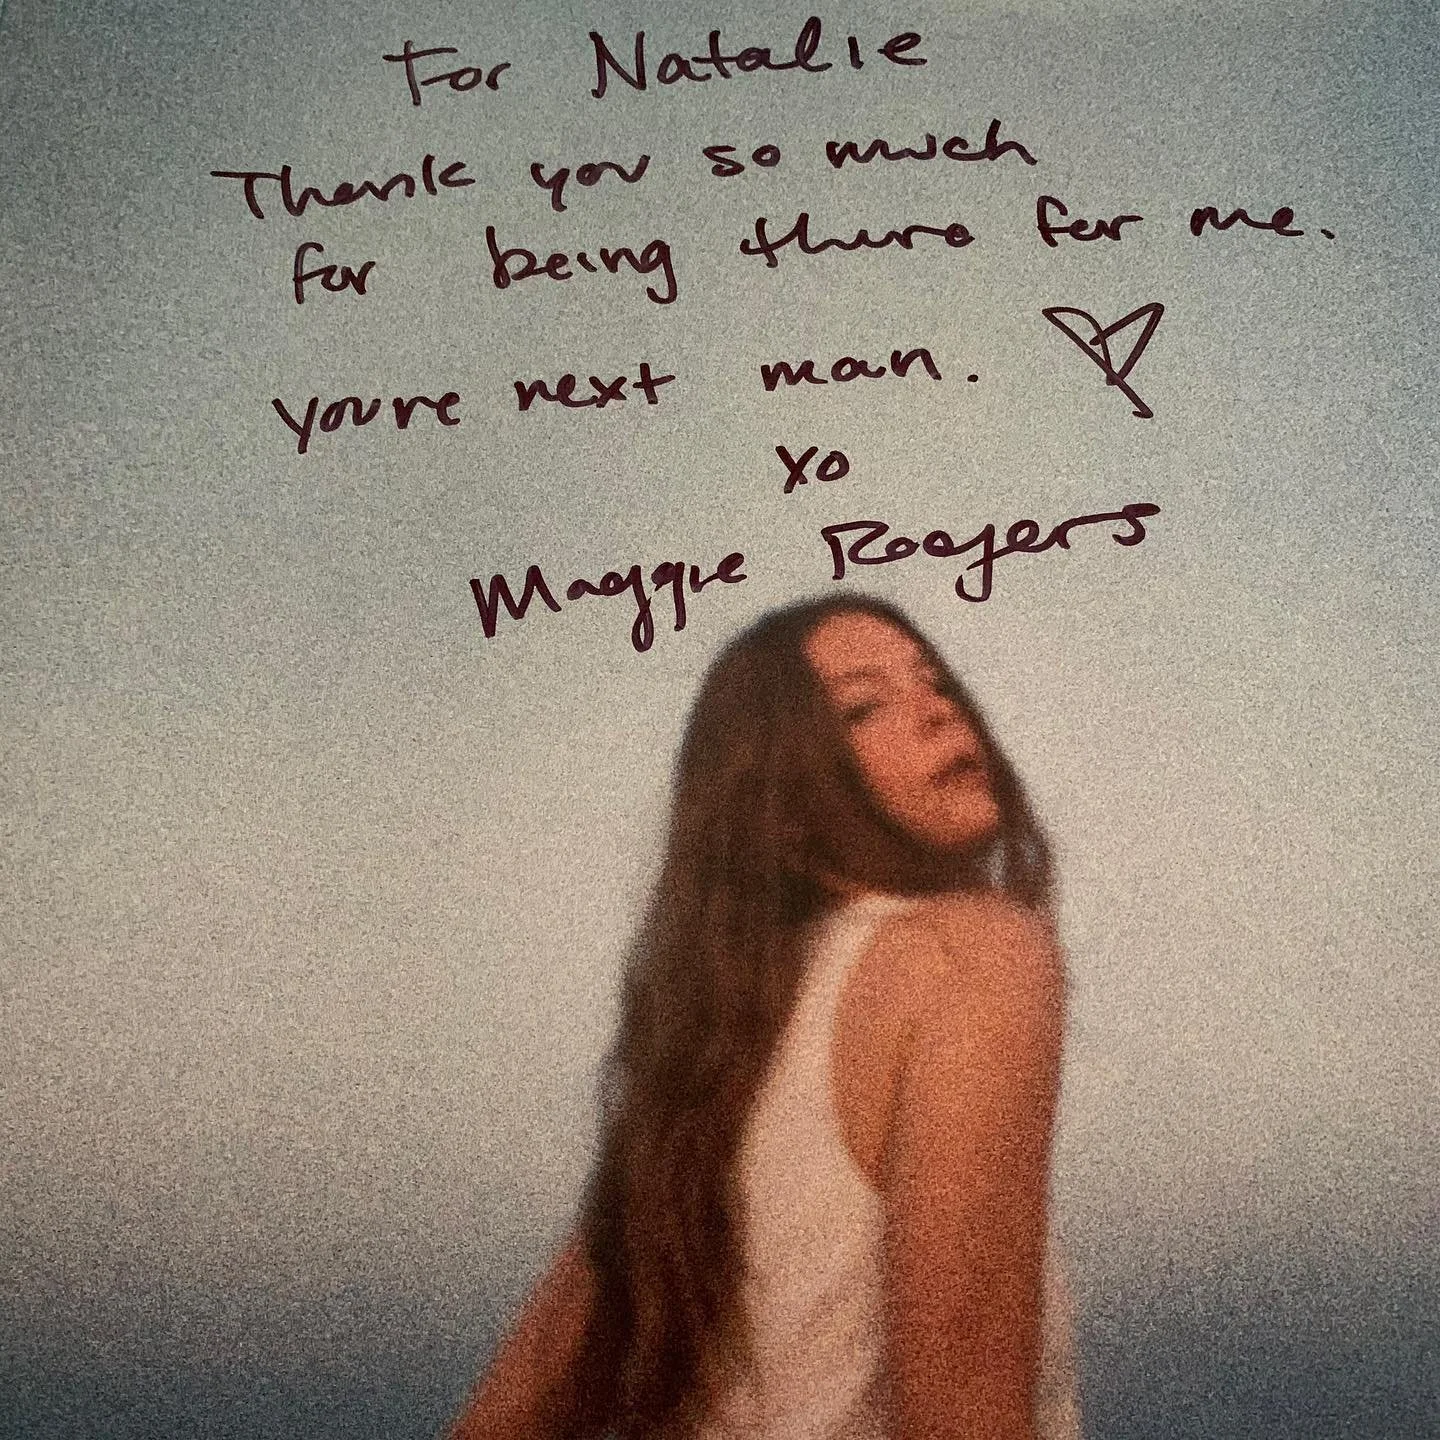 For Natalie
Thank you so much
for being there for me.
you're next man. ♡
xo
Maggie Rogers